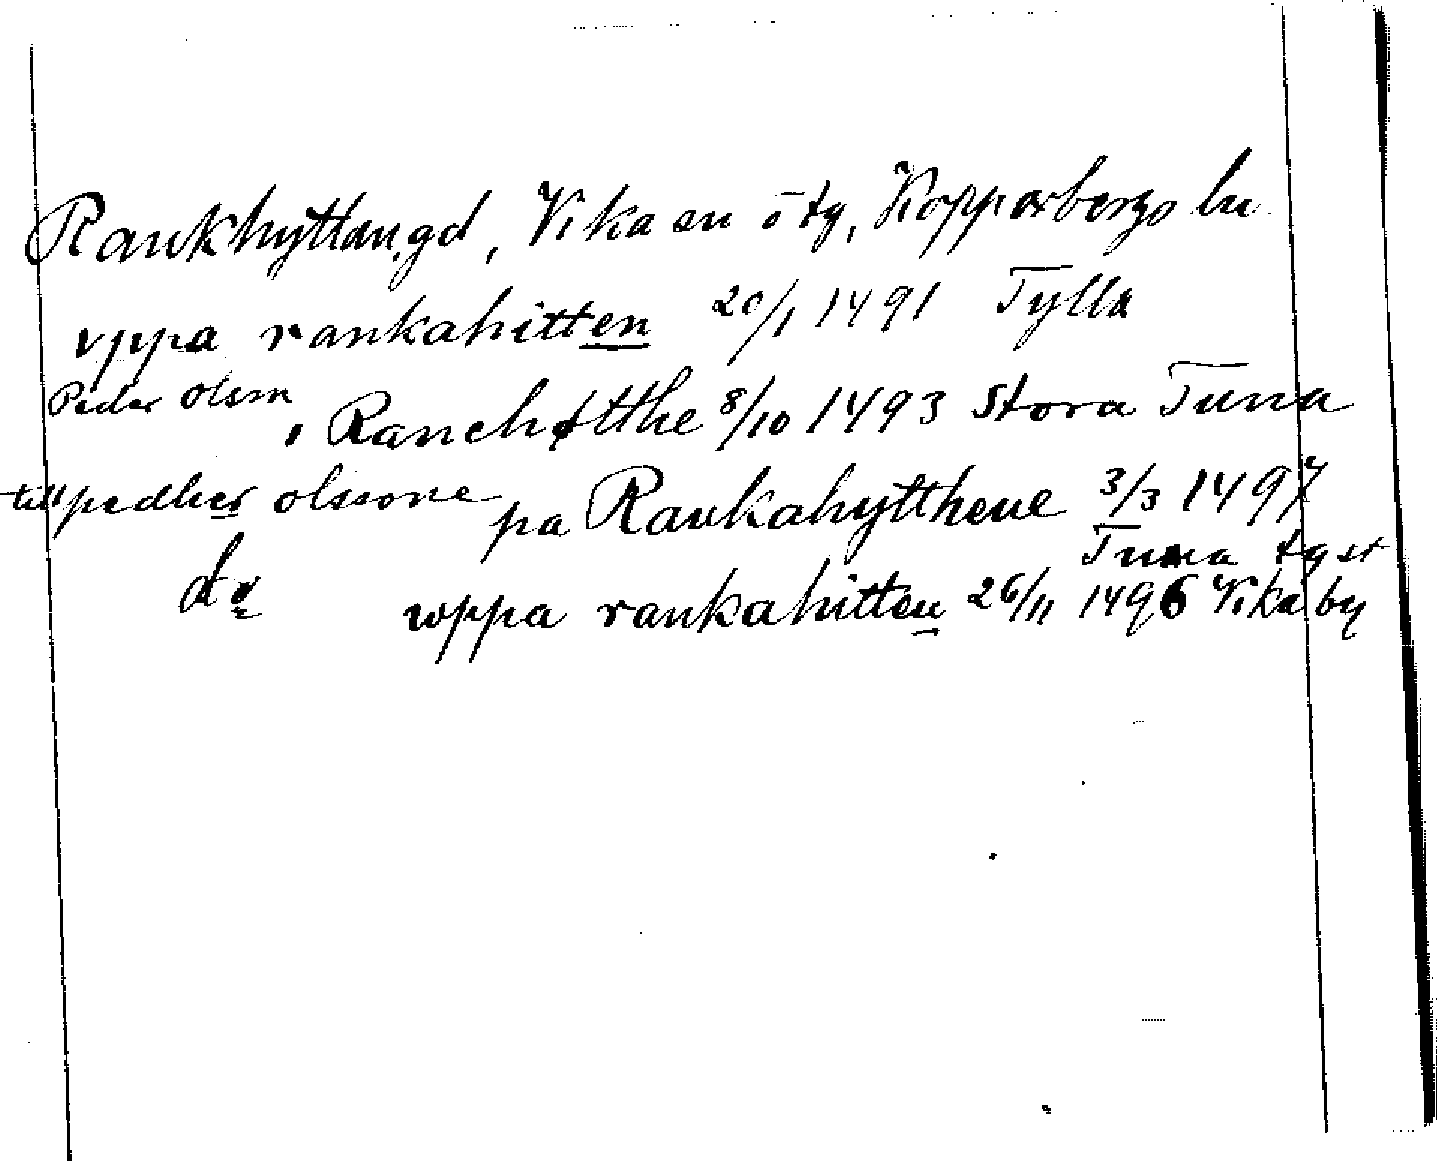 Rankhyttan.gd, Vika sn ö tg, Kopparbergs ln
vppa rankahitten 20/1 1491 Tylla
Peder Olsson, Ranchøtthe 8/10 1493 Stora Tuna
till pedher olssone pa Rankahytthene 3/3 1497
Tuna tgst
do wppa rankahitten 26/11 1496 Vika by